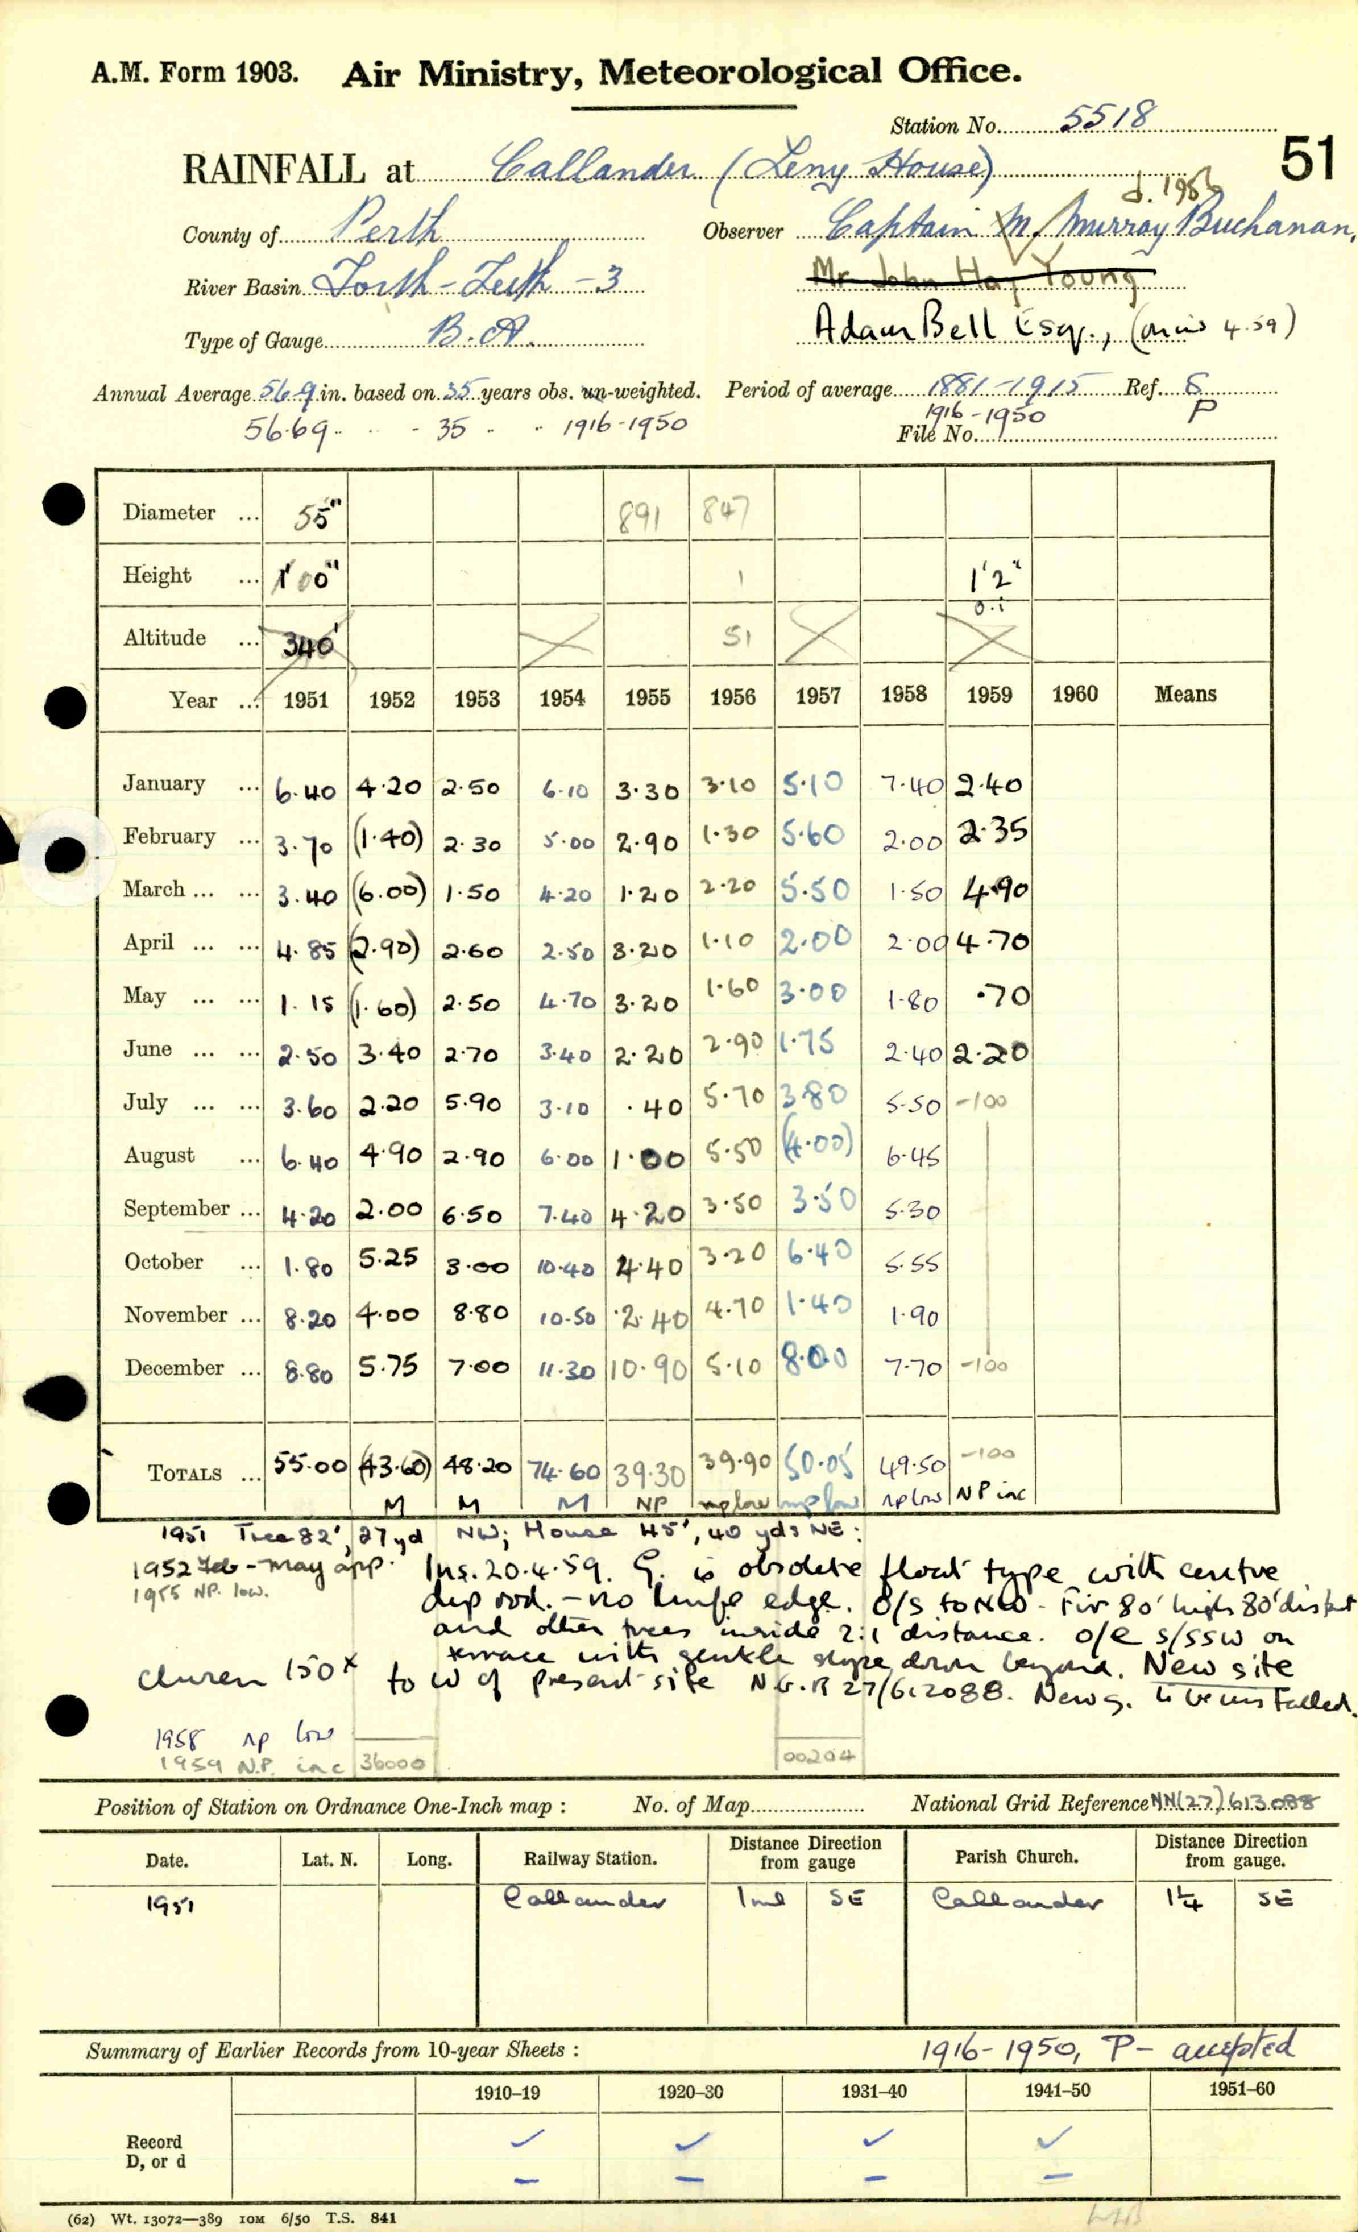 A.M. Form 1903. Air Ministry, Meteorological Office.
Station No. 5518
51
RAINFALL at Callander (Leny House)
d. 1956
County of Perth Observer Captain M. Murray Buchanan,
River Basin Forth-Teith-3 Mr John Hay Young
Type of Gauge B.A. Adam Bell Esq.,
Annual Average 56.9 in. based on 35 years obs. un-weighted. Period of average 1881-1915 Ref. S
56.69 .. - 35 .. .. 1916-1950 1916-1950 P
File No.
Diameter ... 5" 891 847
Height ... 1'00" 1 1'2"
Altitude ... 340' 51
Year ... 1951 1952 1953 1954 1955 1956 1957 1958 1959 1960 Means
January ... 6.40 4.20 2.50 6.10 3.30 3.10 5.10 7.40 2.40
February ... 3.70 (1.40) 2.30 5.00 2.90 1.30 5.60 2.00 2.35
March ... ... 3.40 (6.00) 1.50 4.20 1.20 2.20 5.50 1.50 4.90
April ... ... 4.85 (2.90) 2.60 2.50 3.20 1.10 2.00 2.00 4.70
May ... ... 1.15 (1.60) 2.50 4.70 3.20 1.60 3.00 1.80 .70
June ... ... 2.50 3.40 2.70 3.40 2.20 2.90 1.75 2.40 2.20
July ... ... 3.60 2.20 5.90 3.10 .40 5.70 3.80 5.50 -100
August ... 6.40 4.90 2.90 6.00 1.00 5.50 (4.00) 6.45
September ... 4.20 2.00 6.50 7.40 4.20 3.50 3.50 5.30
October ... 1.80 5.25 3.00 10.40 4.40 3.20 6.40 5.55
November ... 8.20 4.00 8.80 10.50 2.40 4.70 1.40 1.90
December ... 8.80 5.75 7.00 11.30 10.90 5.10 8.00 7.70 -100
TOTALS ... 55.00 (43.60) 48.20 74.60 39.30 39.90 50.05 49.50 -100
M M M NP np low np low np low NP inc
1951 Tree 82', 27 yd NW; House 45', 40 yds NE:
1952 Feb - May app. Ins. 20.4.59. G. is obsolete float type with centre
1955 NP. low. dip rod. - no knife edge. O/S to NW - Fir 80' high 80' distant
and other trees inside 2:1 distance. O/E S/SSW on
terrace with gentle slope down beyond. New site
150x to W of present site N.G.R 27/612088. New g. to be installed.
1958 np low
1959 N.P. inc 36000 00204
Position of Station on Ordnance One-Inch map : No. of Map National Grid Reference NN(27)613088
Date. Lat. N. Long. Railway Station. Distance Direction from gauge Parish Church. Distance Direction from gauge.
1951 Callander 1ml SE Callander 1¼ SE
Summary of Earlier Records from 10-year Sheets : 1916-1950, P - accepted
1910-19 1920-30 1931-40 1941-50 1951-60
Record ✓ ✓ ✓ ✓
D, or d – – – –
(62) Wt. 13072—389 10M 6/50 T.S. 841